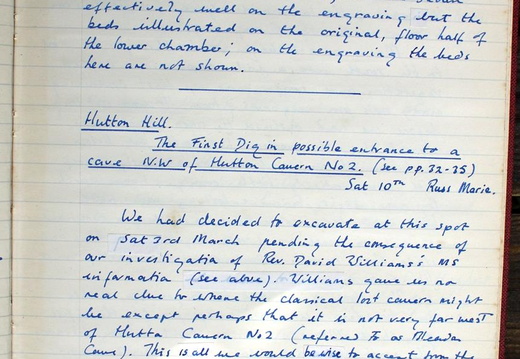 effectively well on the engraving but the
beds illustrated on the original, floor half of
the lower chamber; on the engraving the beds
here are not shown.
Hutton Hill.
The First Dig in possible entrance to a
cave N.W of Hutton Cavern No 2. (see pp. 32-35)
Sat 10th Russ Marie.
We had decided to excavate at this spot
on Sat 3rd March pending the consequence of
our investigation of Rev. David Williams's MS
information (see above). Williams gave us no
real clue to where the classical lost cavern might
be except perhaps that it is not very far west
of Hutton Cavern No 2 (referred to as
Cave). This is all we would be wise to accept from the